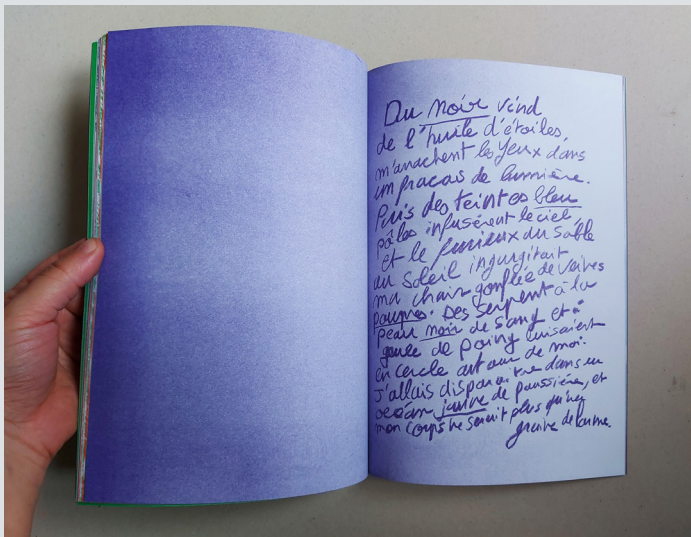 Du Noir vind
de l'huile d'étoiles,
m'arrachent les yeux dans
un fracas de lumière.
Puis des teintes bleu
pâles infusèrent le ciel,
et le furieux du sable
du soleil ingurgitait
ma chair gonflée de veines
pourpres. Des serpent à la
peau noir de sang et à
gueule de poing luisaient
en cercle autour de moi.
J'allais disparaitre dans un
océan jaune de poussière, et
mon corps ne serait plus qu'une
graine de